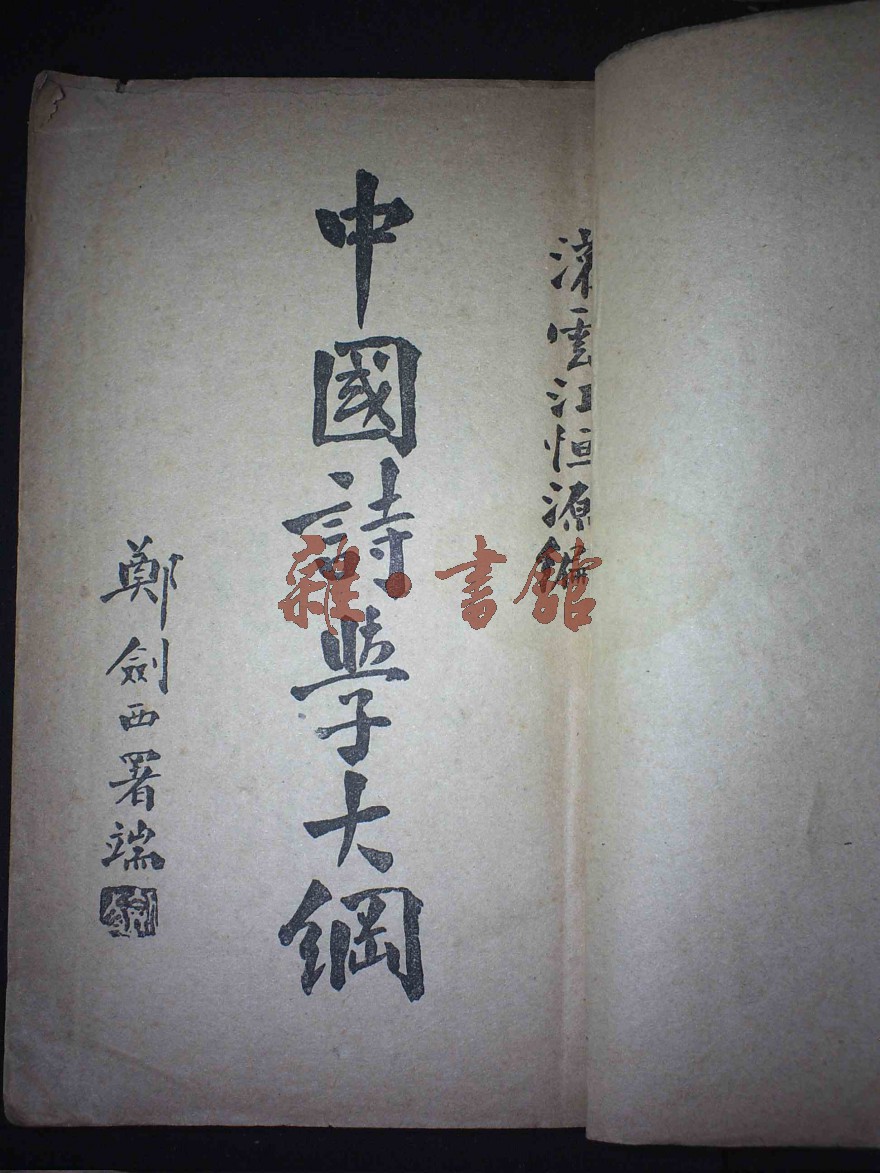 溧雲江恒源編
中國詩學大綱
鄭劍西署端
雜·書館